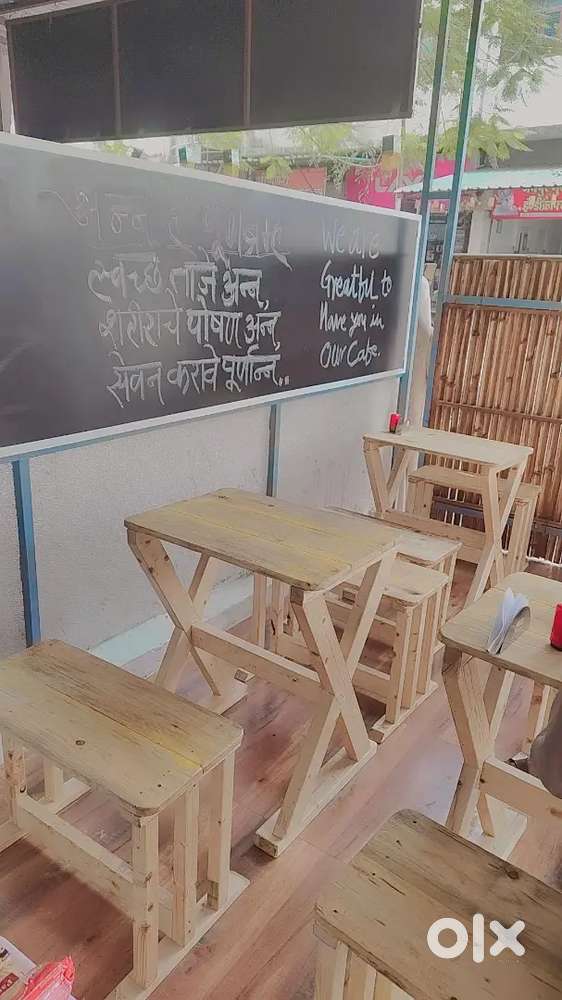 अन्न हे पूर्णब्रह्म
स्वच्छ ताजे अन्न,
शरीराचे पोषण अन्न,
सेवन करावे पूर्णान्न..
We are
Greatful to
Have you in
Our Cafe.
olx